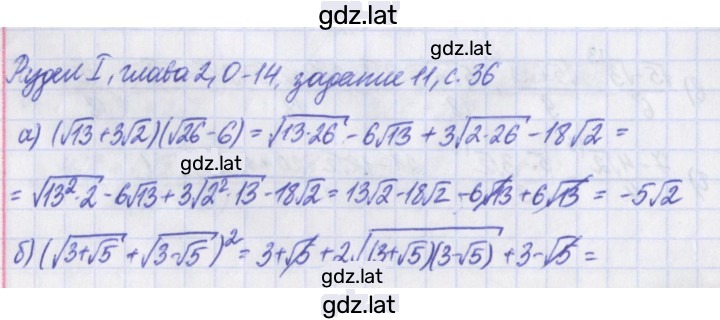 gdz.lat
gdz.lat
Раздел I, глава 2, О-14, задание 11, с. 36
а) (√13 + 3√2)(√26 - 6) = √(13·26) - 6√13 + 3√(2·26) - 18√2 =
gdz.lat
= √(13²·2) - 6√13 + 3√(2²·13) - 18√2 = 13√2 - 18√2 - 6√13 + 6√13 = -5√2
б) (√(3+√5) + √(3-√5))² = 3+√5 + 2√((3+√5)(3-√5)) + 3-√5 =
gdz.lat
gdz.lat